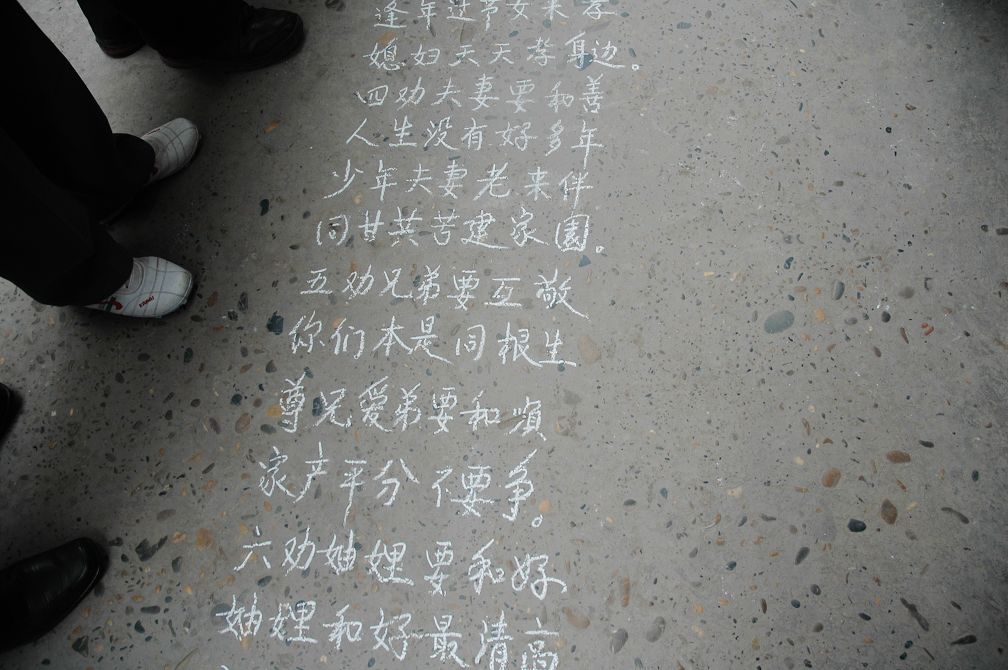 逢年过节女来孝
媳妇天天孝身边。
四劝夫妻要和善
人生没有好多年
少年夫妻老来伴
同甘共苦建家园。
五劝兄弟要互敬
你们本是同根生
尊兄爱弟要和顺
家产平分不要争。
六劝妯娌要和好
妯娌和好最清高